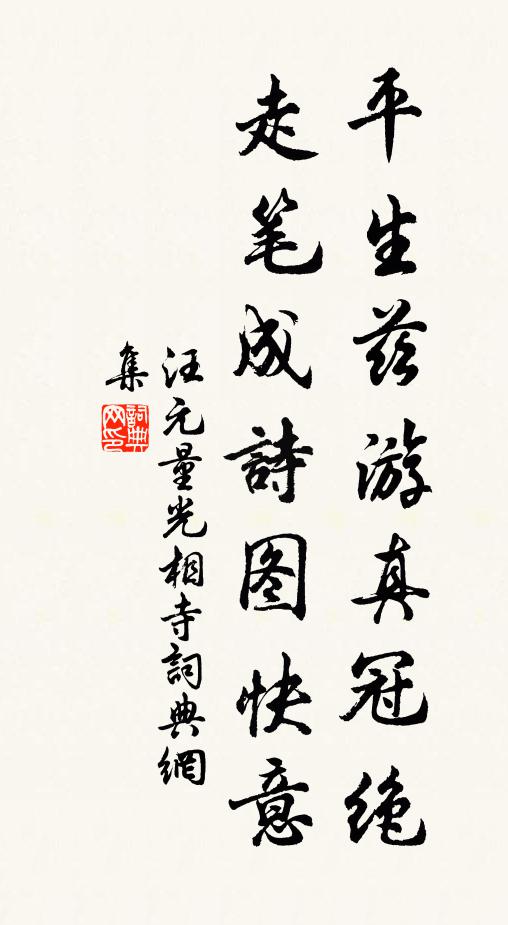 平生兹游真冠绝
走笔成詩图快意
汪元量光相寺詞典網
集
詞典
网印